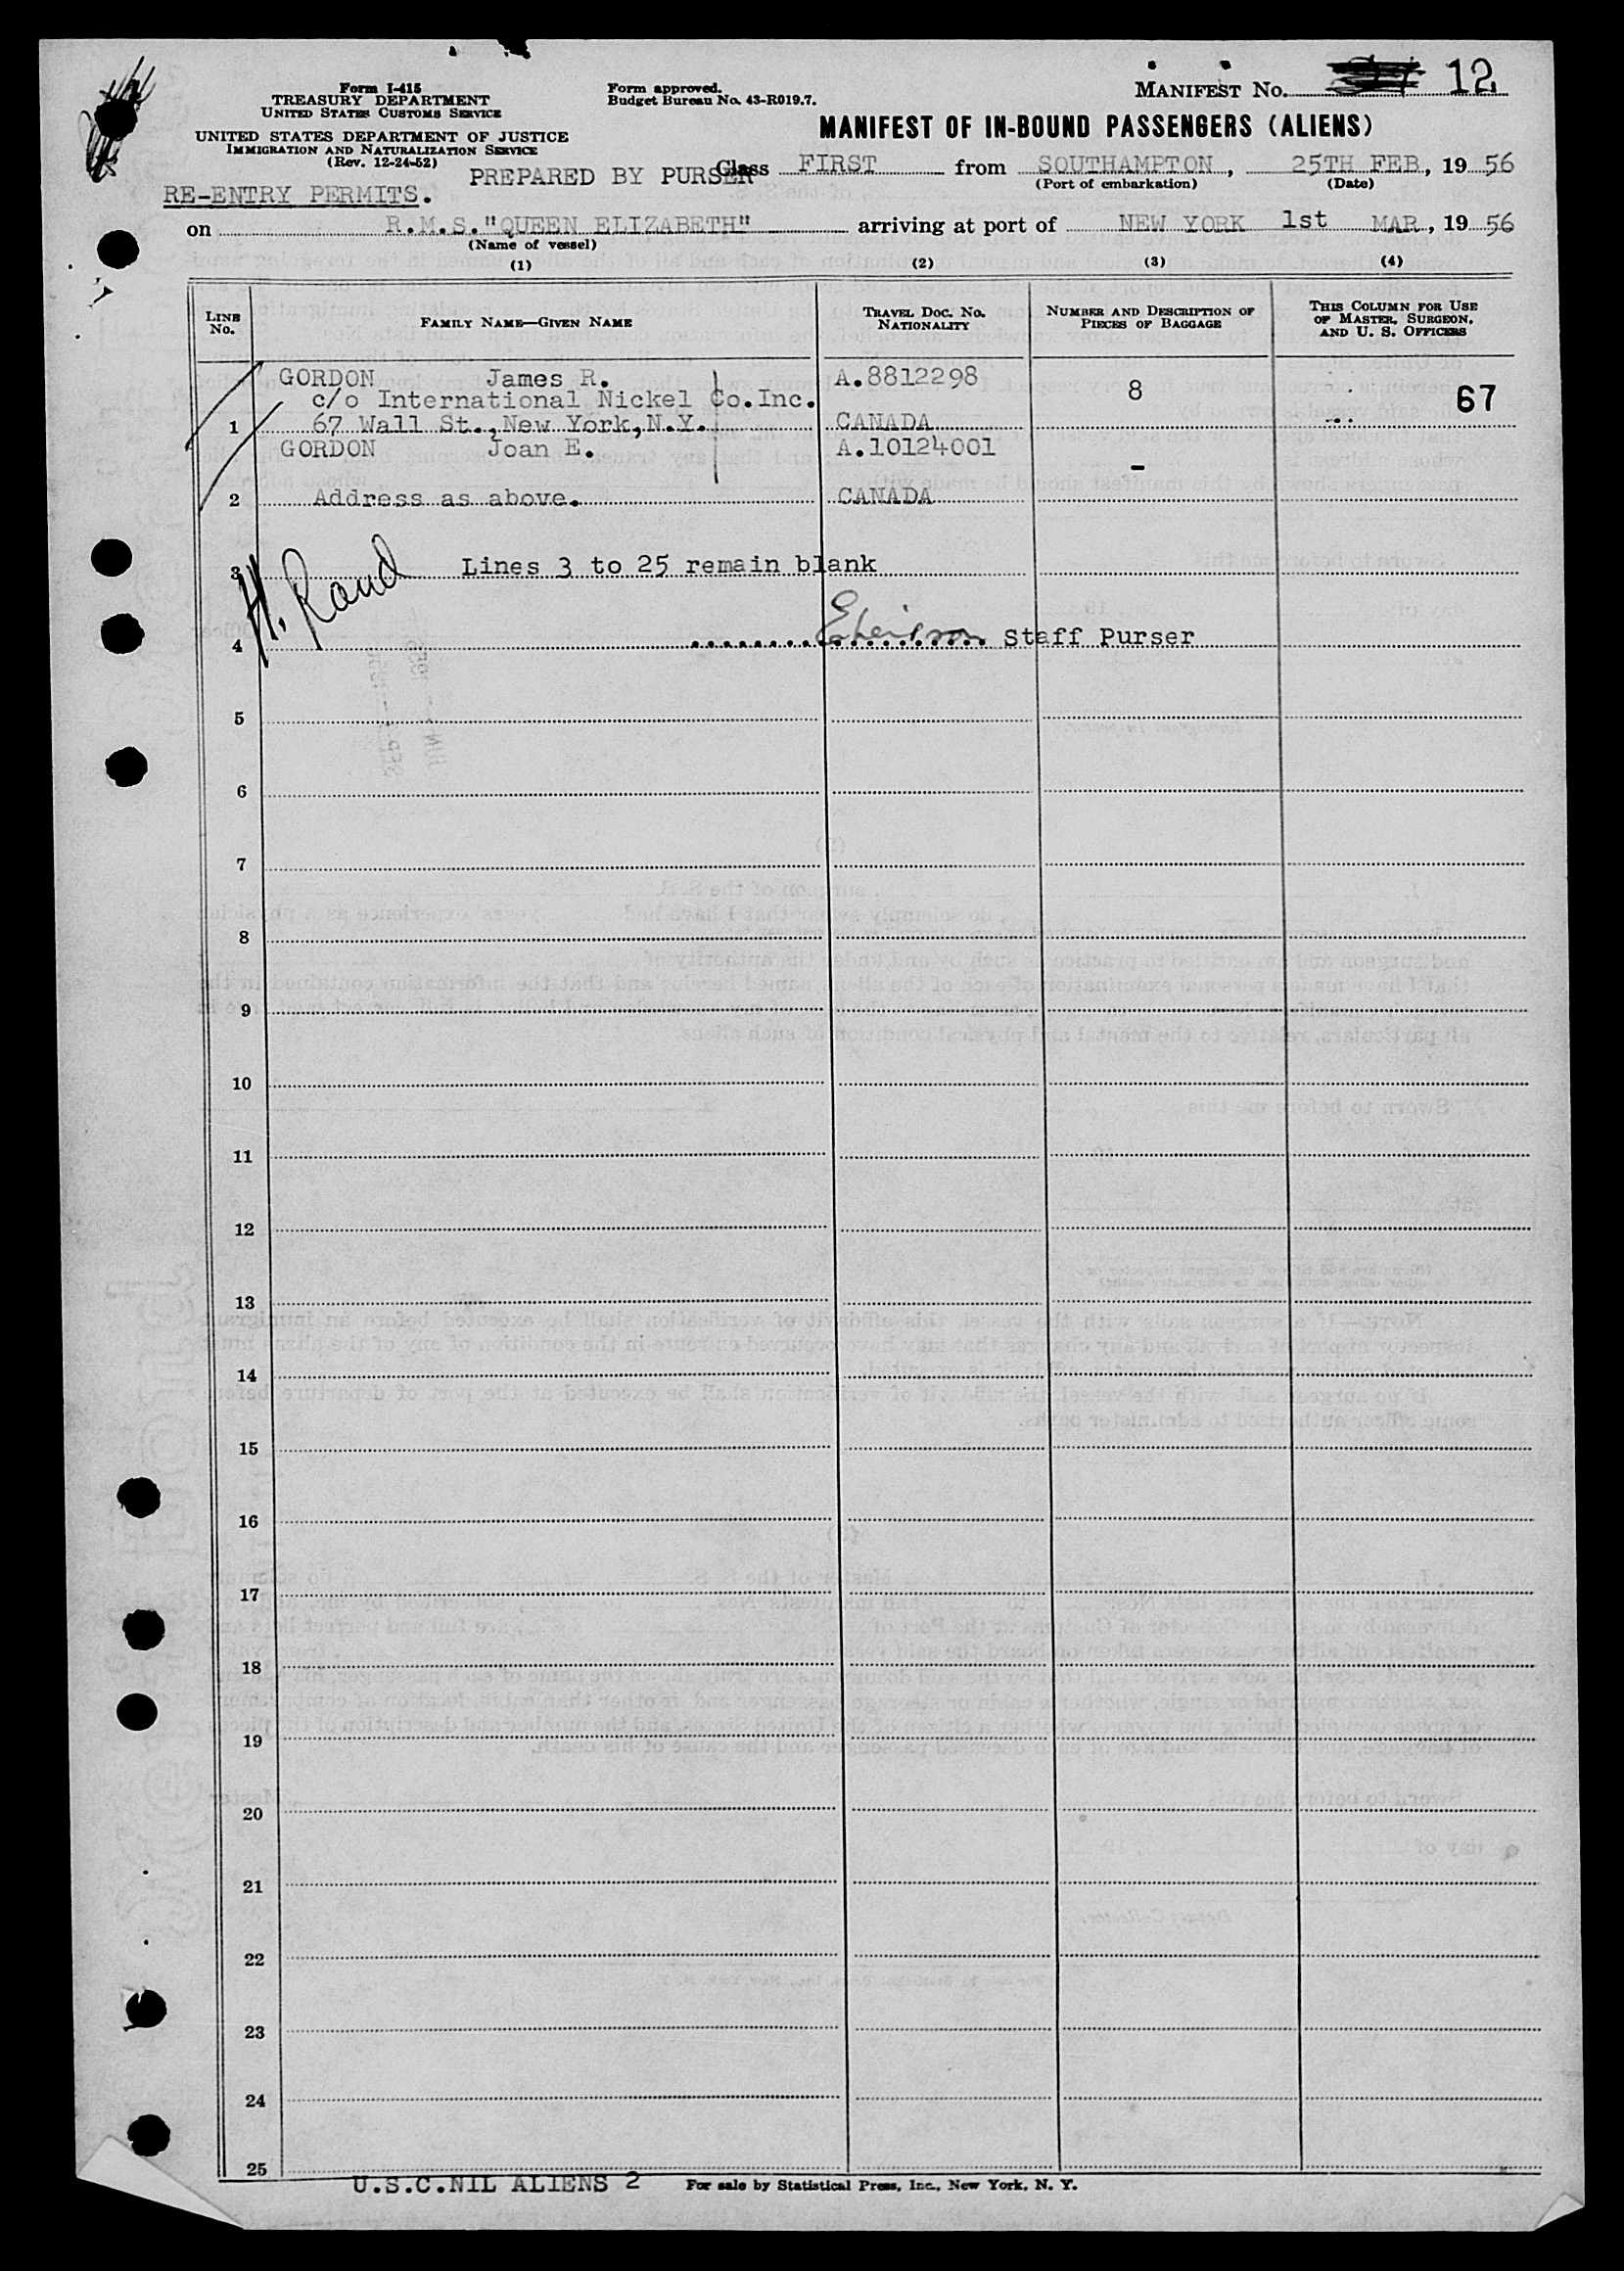 MANIFEST No. 12
Form I-415
TREASURY DEPARTMENT
UNITED STATES CUSTOMS SERVICE
UNITED STATES DEPARTMENT OF JUSTICE
IMMIGRATION AND NATURALIZATION SERVICE
(Rev. 12-24-52)
Form approved.
Budget Bureau No. 43-R019.7.
MANIFEST OF IN-BOUND PASSENGERS (ALIENS)
PREPARED BY PURSER
Class FIRST from SOUTHAMPTON, 25TH FEB, 19 56
(Port of embarkation) (Date)
RE-ENTRY PERMITS.
on R.M.S."QUEEN ELIZABETH" arriving at port of NEW YORK 1st MAR, 19 56
(Name of vessel)
(1) (2) (3) (4)
LINE No. FAMILY NAME—GIVEN NAME TRAVEL DOC. NO. NATIONALITY NUMBER AND DESCRIPTION OF PIECES OF BAGGAGE THIS COLUMN FOR USE OF MASTER, SURGEON, AND U. S. OFFICERS
GORDON James R. A.8812298 8 67
c/o International Nickel Co.Inc.
1 67 Wall St.,New York,N.Y. CANADA
GORDON Joan E. A.10124001 -
2 Address as above. CANADA
3 H. Rand Lines 3 to 25 remain blank
4 Staff Purser
5
6
7
8
9
10
11
12
13
14
15
16
17
18
19
20
21
22
23
24
25
U.S.C.NIL ALIENS 2 For sale by Statistical Press, Inc., New York, N. Y.